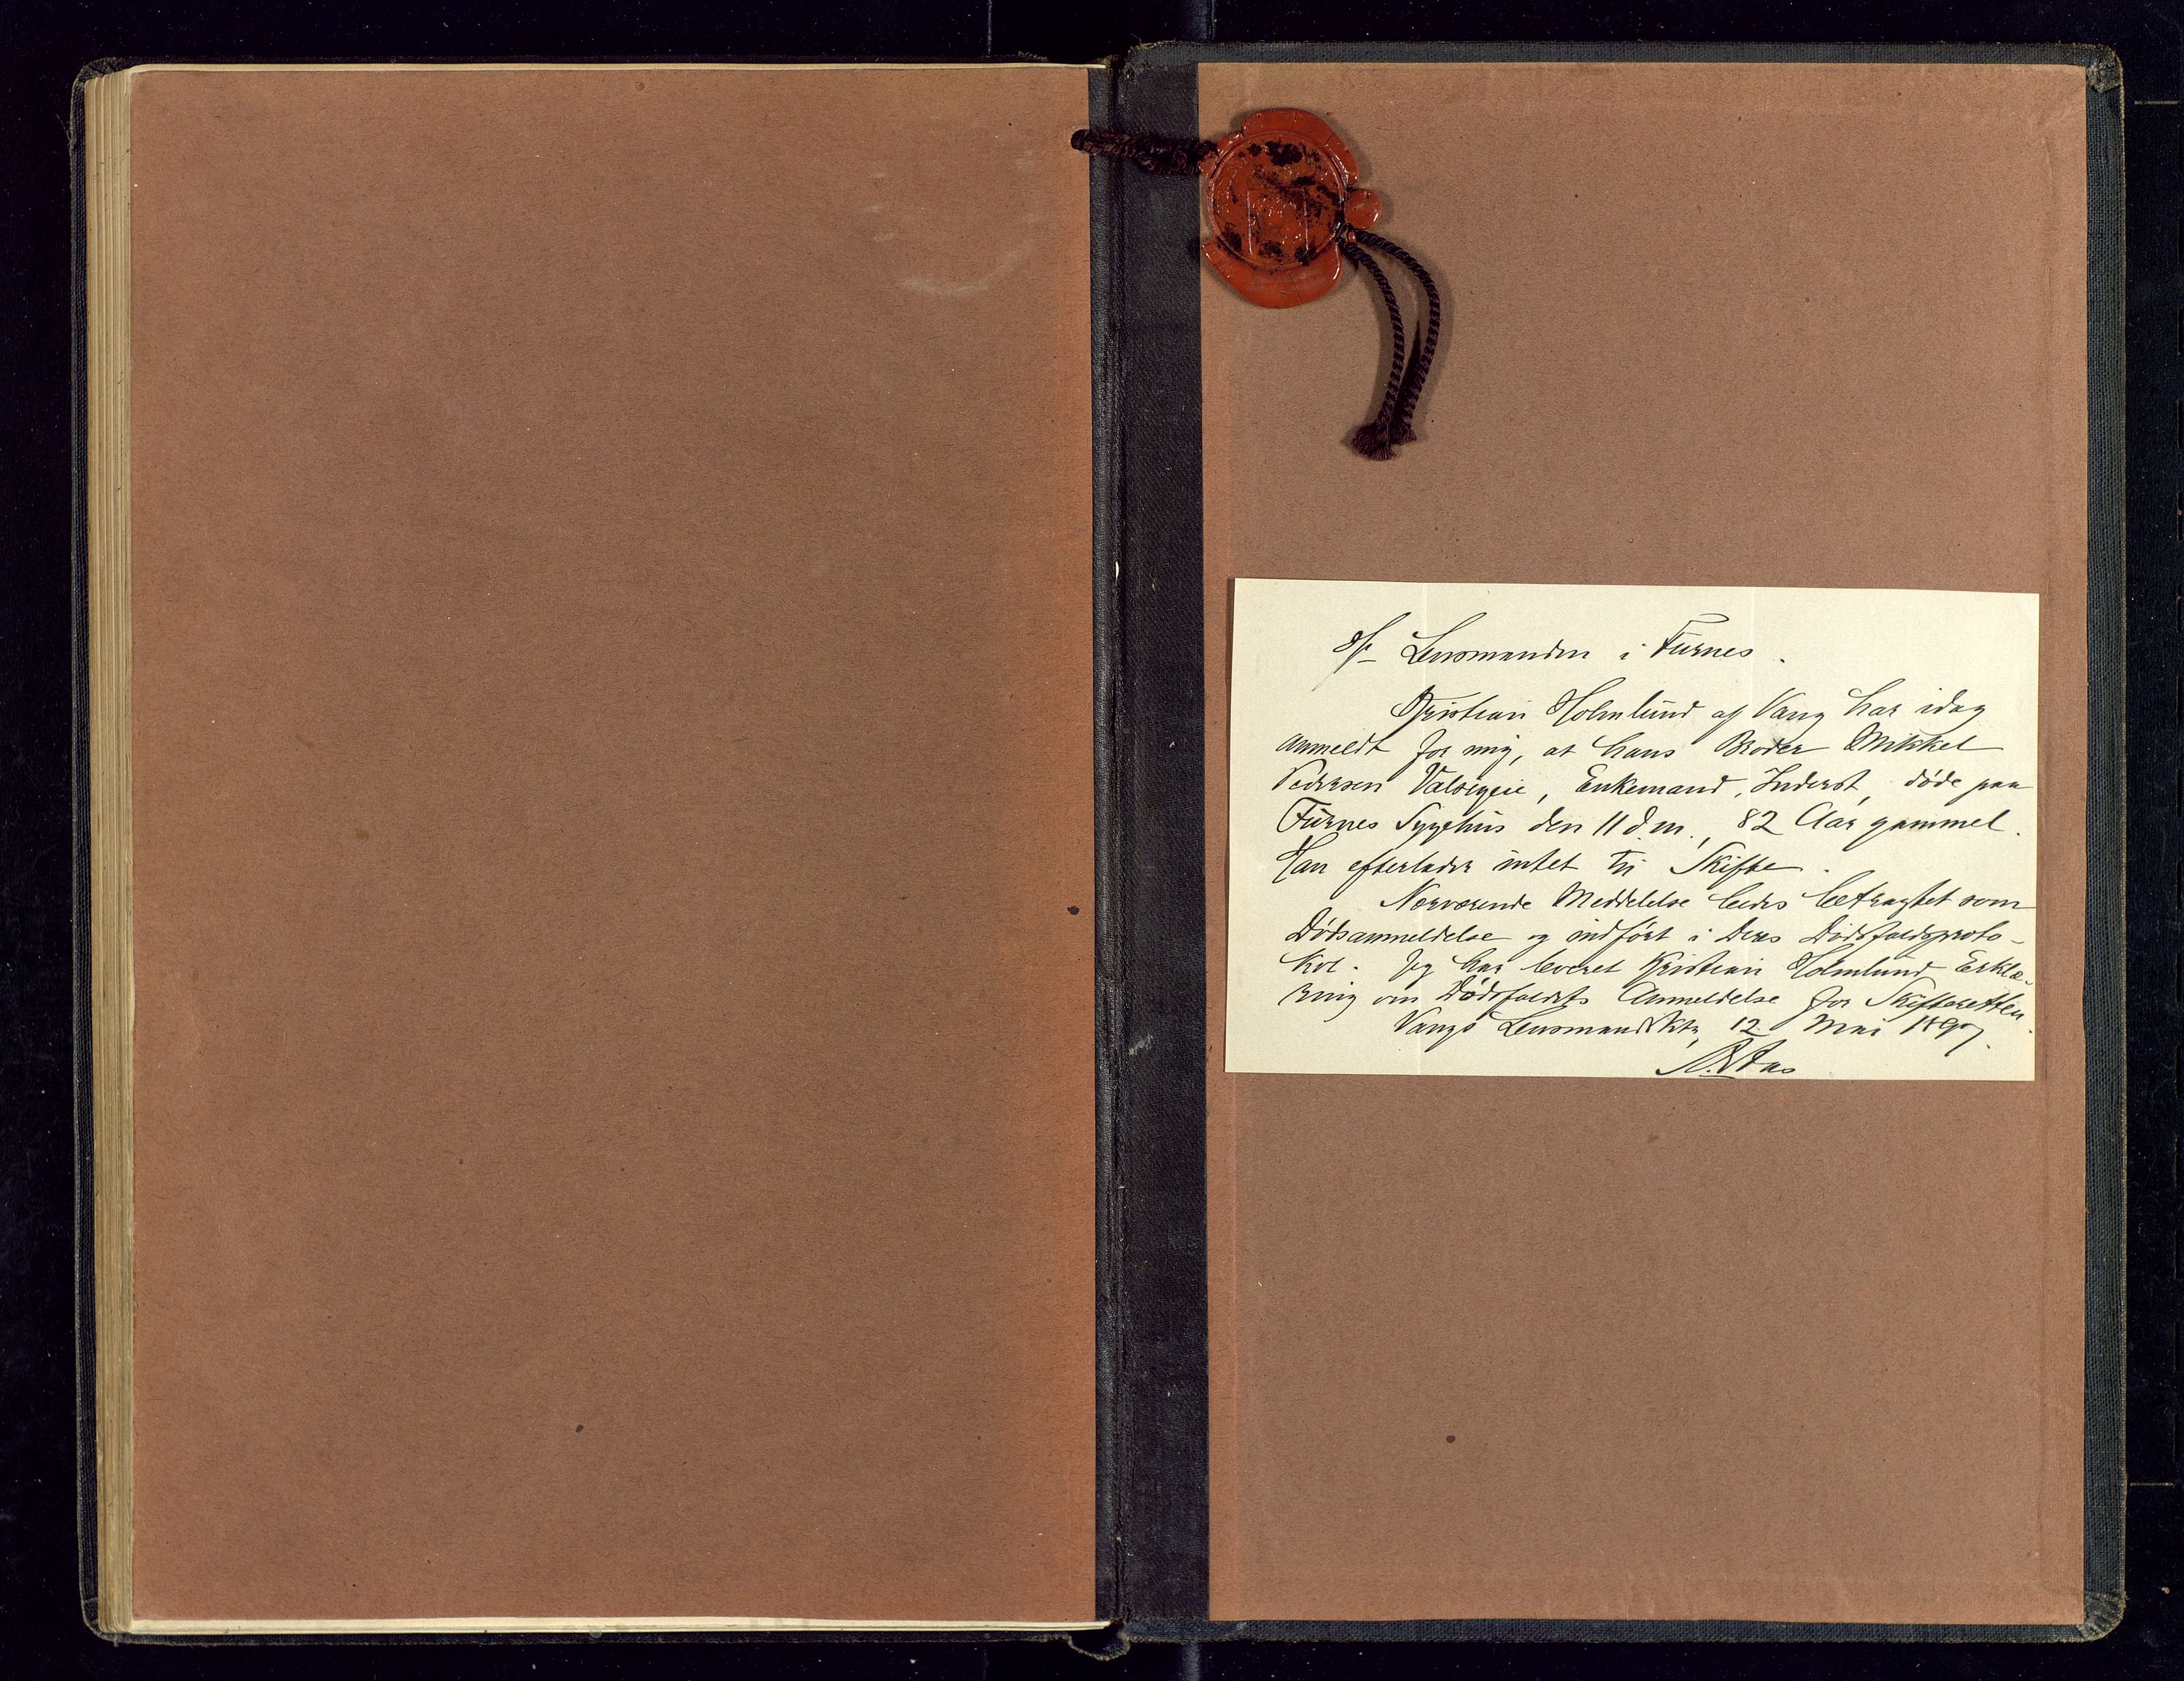 Hr Lensmanden i Furnes.
Kristian Holmlund af Vang har idag
anmeldt for mig, at hans Broder Mikkel
Pedersen Valseie, Enkemand, Inderst, døde paa
Furnes Sygehus den 11 d.m., 82 Aar gammel.
Han efterlader intet til Skifte.
Nærværende Meddelelse bedes betragtet som
Dødsanmeldelse og indført i Deres Dødsfaldsproto-
kol. Jeg har leveret Kristian Holmlund Erklæ-
ring om Dødsfaldets Anmeldelse for Skifteretten.
Vangs Lensmandsktr, 12 Mai 1897.